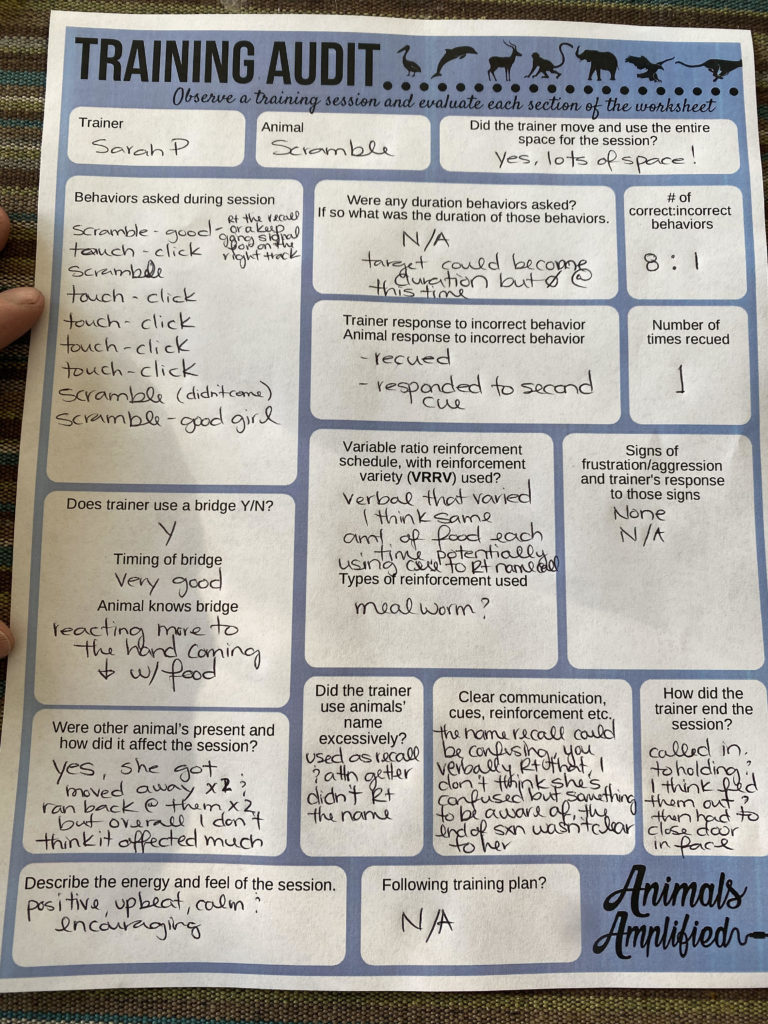 TRAINING AUDIT
Observe a training session and evaluate each section of the worksheet
Trainer
Sarah P
Animal
Scramble
Did the trainer move and use the entire
space for the session?
Yes, lots of space!
Behaviors asked during session
scramble - good - R+ the recall
or a keep
going signal
for on the
right track
touch - click
scramble
touch - click
touch - click
touch - click
touch - click
scramble (didn't come)
scramble - good girl
Were any duration behaviors asked?
If so what was the duration of those behaviors.
N/A
target could become
duration but Ø @
this time
# of
correct:incorrect
behaviors
8 : 1
Trainer response to incorrect behavior
Animal response to incorrect behavior
- recued
- responded to second
cue
Number of
times recued
1
Does trainer use a bridge Y/N?
Y
Timing of bridge
very good
Animal knows bridge
reacting more to
the hand coming
↓ w/ food
Variable ratio reinforcement
schedule, with reinforcement
variety (VRRV) used?
verbal that varied
I think same
amt. of food each
time potentially
using cue to R+ name
Types of reinforcement used
mealworm?
Signs of
frustration/aggression
and trainer's response
to those signs
None
N/A
Were other animal's present and
how did it affect the session?
yes, she got
moved away x2 ?
ran back @ them x2
but overall I don't
think it affected much
Did the trainer
use animals'
name
excessively?
used as recall
? attn getter
didn't R+
the name
Clear communication,
cues, reinforcement etc.
the name recall could
be confusing, you
verbally R+ that, I
don't think she's
confused but something
to be aware of, the
end of sxn wasn't clear
to her
How did the
trainer end the
session?
called in
to holding ?
I think fed
them out ?
then had to
close door
in face
Describe the energy and feel of the session.
positive, upbeat, calm ?
encouraging
Following training plan?
N/A
Animals
Amplified